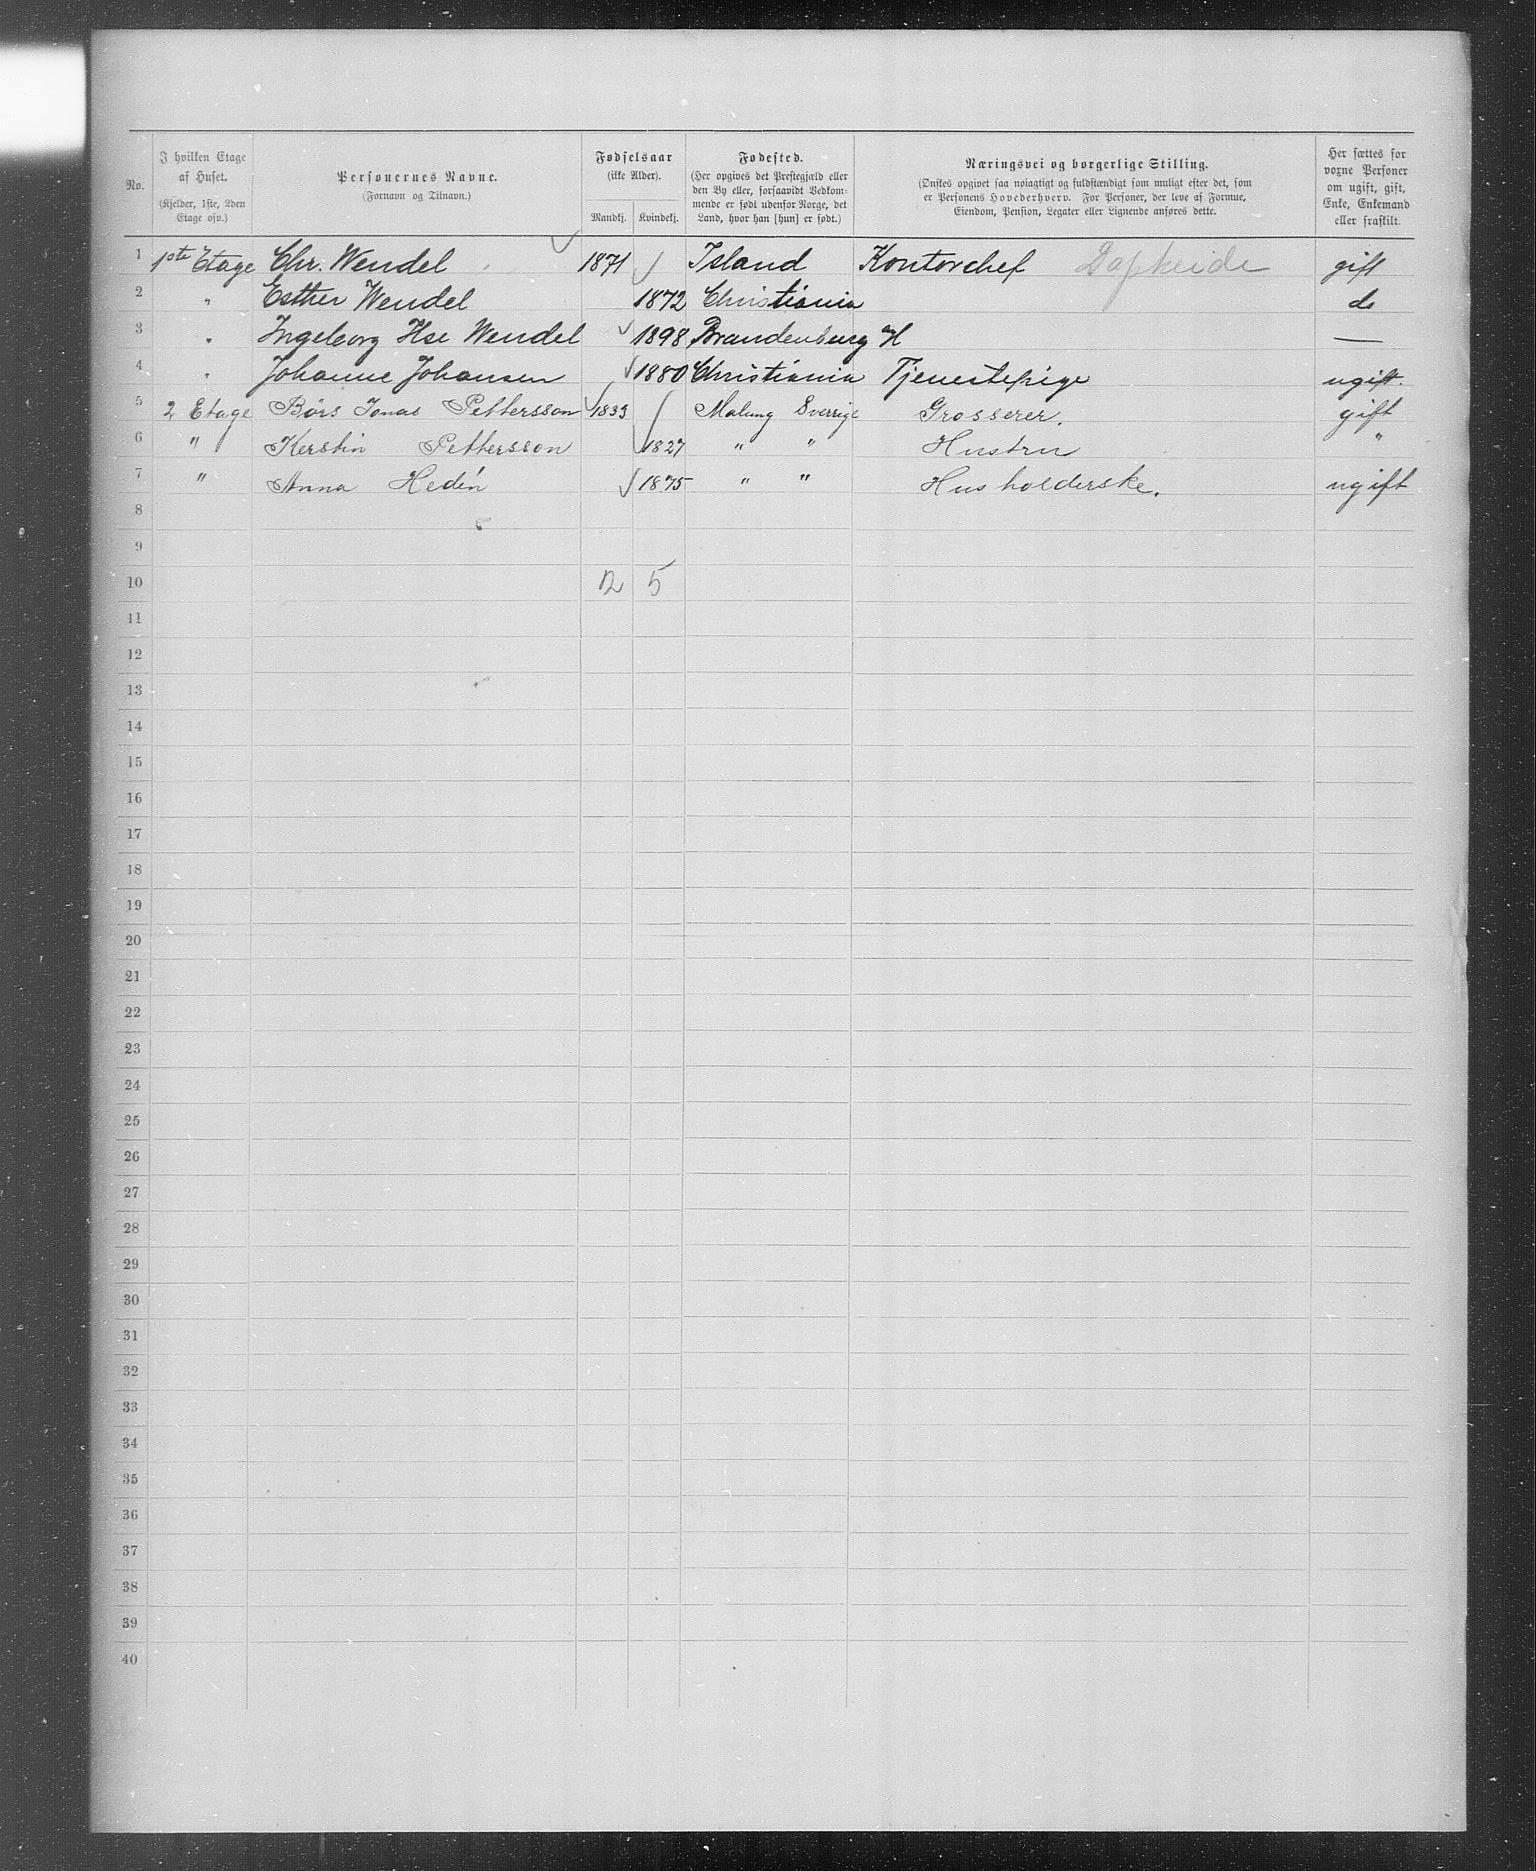 No.
I hvilken Etage af Huset.
(Kjelder, 1ste, 2den Etage osv.)
Personernes Navne.
(Fornavn og Tilnavn.)
Fødselsaar
(ikke Alder).
Mandkj. Kvindekj.
Fødested.
(Her opgives det Prestegjæld eller
den By eller, forsaavidt Vedkom-
mende er født udenfor Norge, det
Land, hvor han [hun] er født.)
Næringsvei og borgerlige Stilling.
(Ønskes opgivet saa nøiagtigt og fuldstændigt som muligt efter det, som
er Personens Hovederhverv. For Personer, der leve af Formue,
Eiendom, Pension, Legater eller Lignende anføres dette.
Her sættes for
voxne Personer
om ugift, gift,
Enke, Enkemand
eller fraskilt.
1 1ste Etage Chr. Wendel 1871 Island Kontorchef gift
2 " Esther Wendel 1872 Christiania do
3 " Ingeborg Ilse Wendel 1898 Brandenburg a/H —
4 " Johanne Johansen 1880 Christiania Tjenestepige ugift.
5 2 Etage Börs Jonas Pettersson 1833 Malung Sverrige Grosserer. gift
6 " Kerstin Pettersson 1827 " " Hustru "
7 " Anna Hedén 1875 " " Husholderske. ugift
8
9
10 2 5
11
12
13
14
15
16
17
18
19
20
21
22
23
24
25
26
27
28
29
30
31
32
33
34
35
36
37
38
39
40